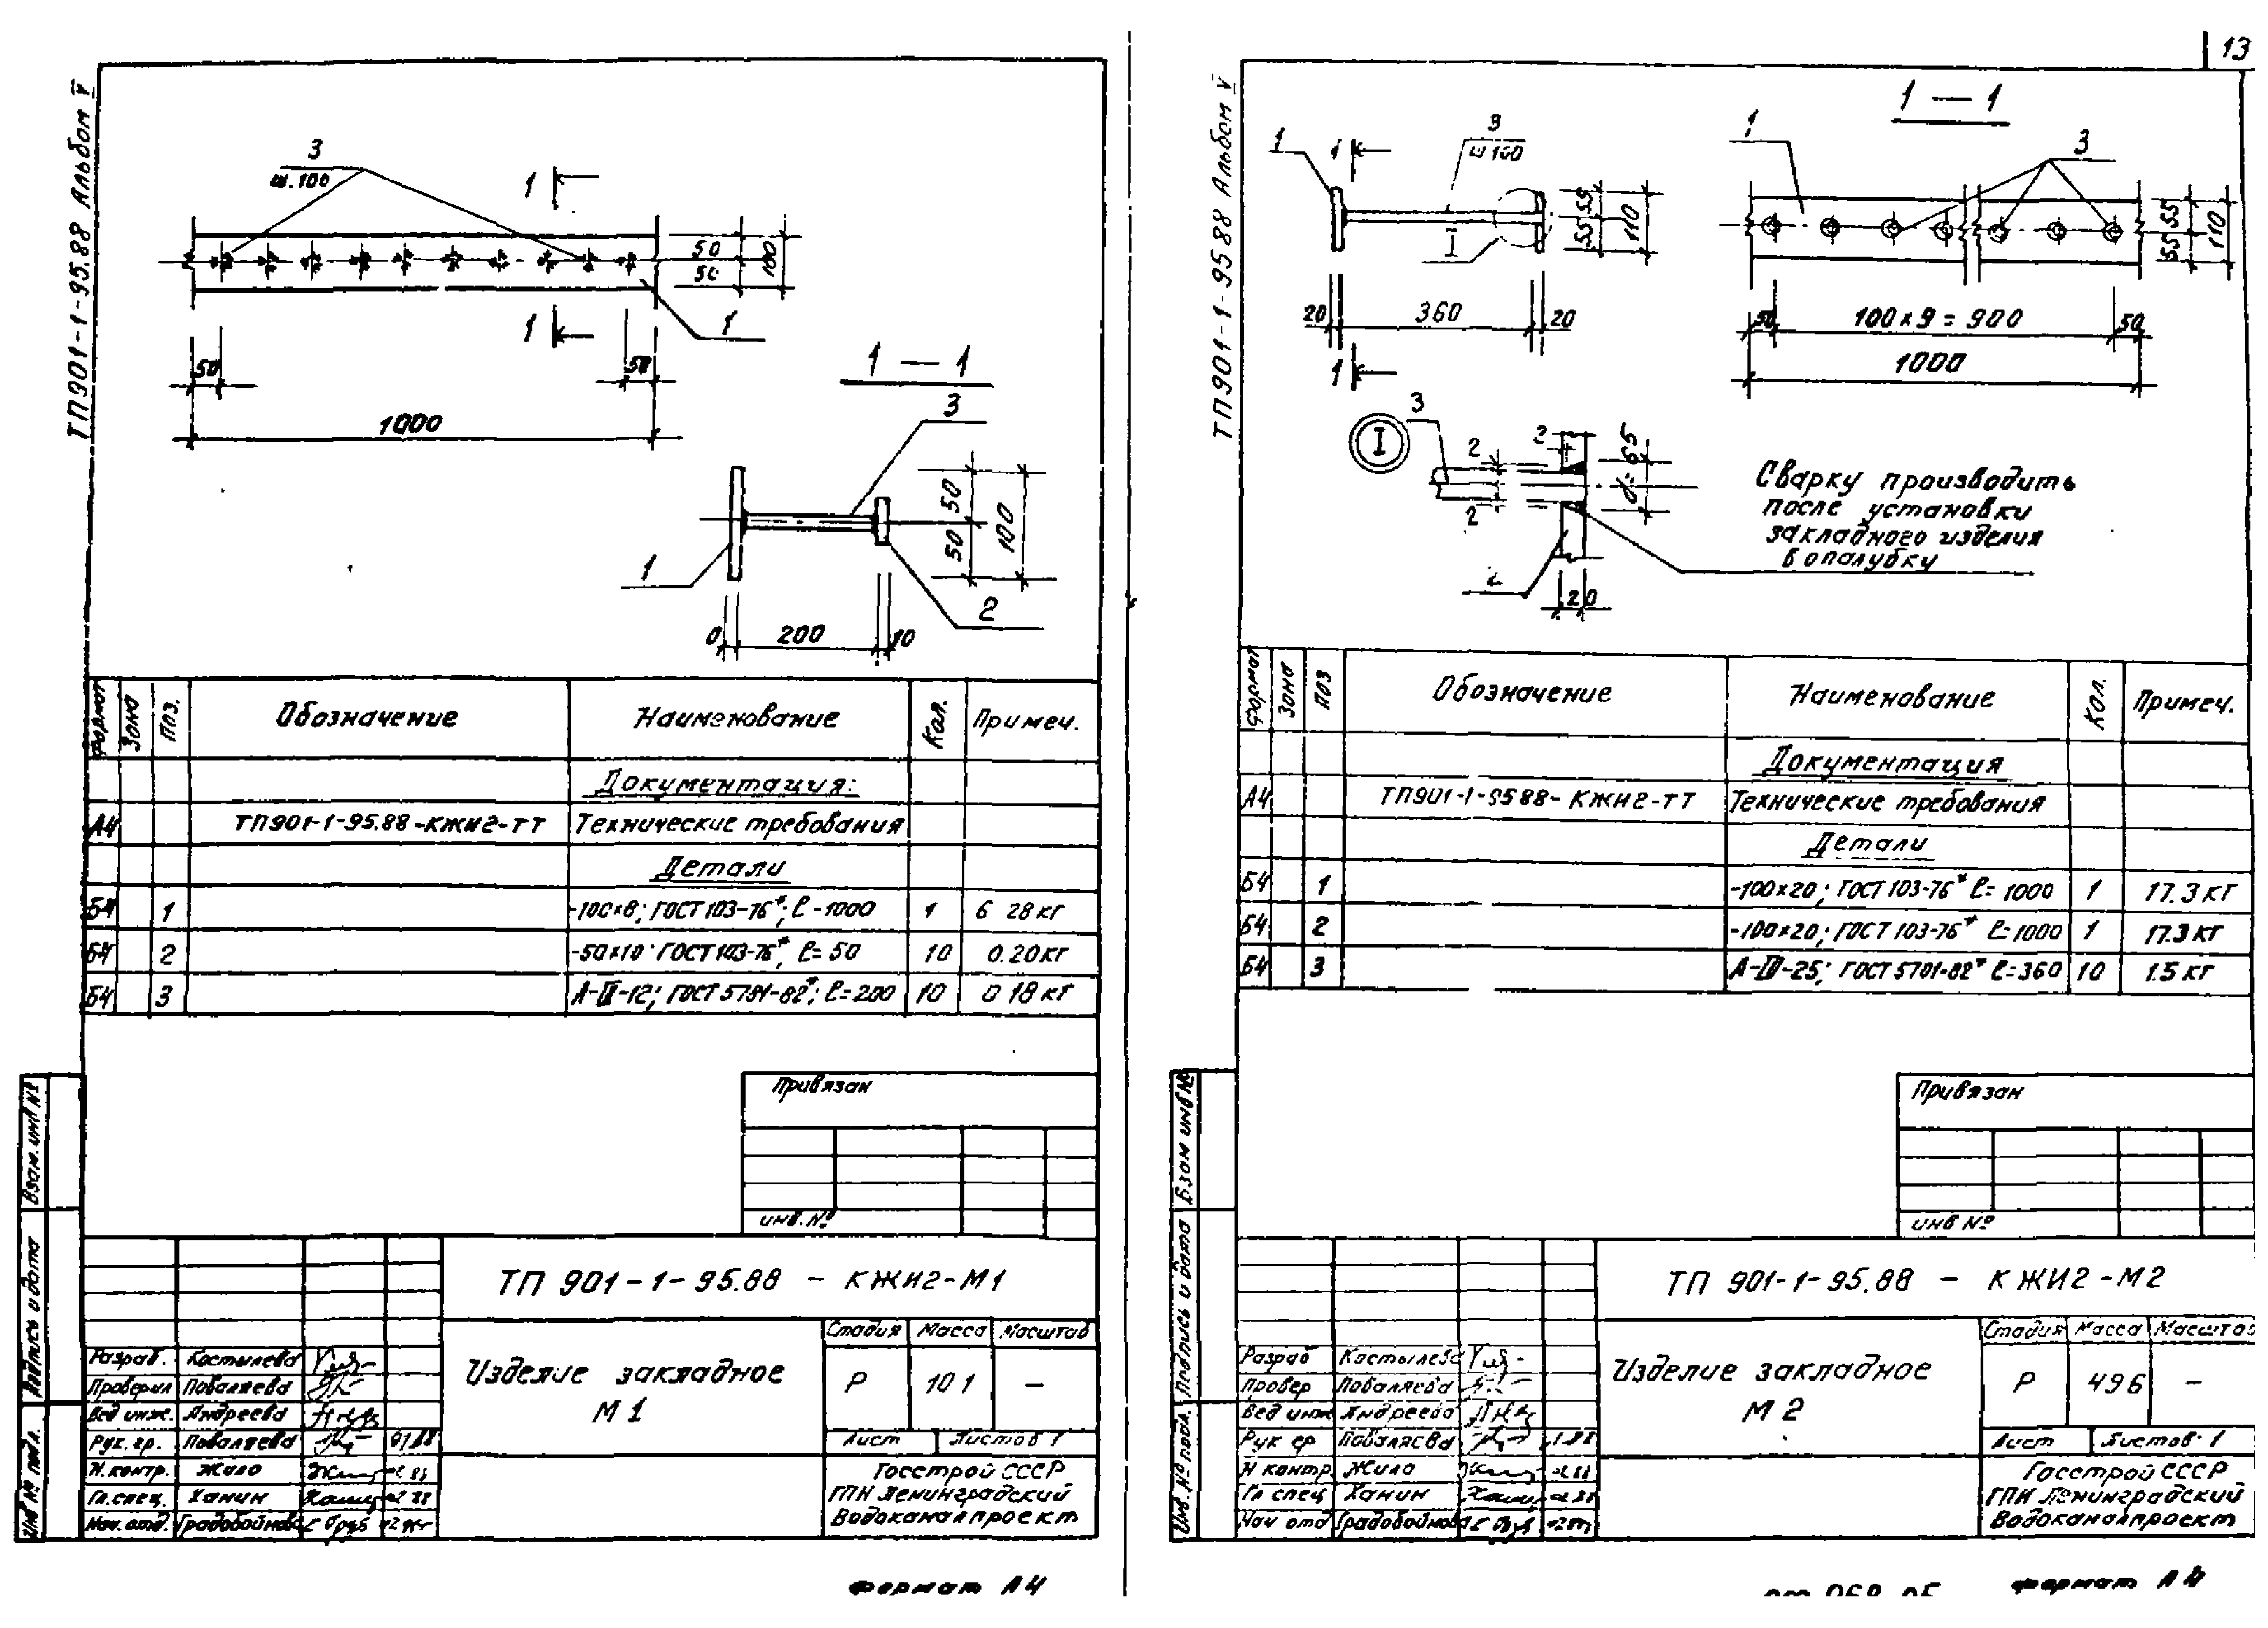 ТП901-1-95.88 Альбом V
3
ш.100
1
1
50
50
100
1
50
50
1000
1 — 1
3
50
50
100
1
2
0
200
10
Формат
Зона
Поз.
Обозначение
Наименование
Кол.
Примеч.
Документация:
А4 ТП901-1-95.88-КЖИ2-ТТ Технические требования
Детали
Б4 1 -100×8; ГОСТ 103-76*; ℓ-1000 1 6 28 кг
Б4 2 -50×10 ГОСТ 103-76*; ℓ=50 10 0.20 кг
Б4 3 А-III-12; ГОСТ 5781-82*; ℓ=200 10 0 18 кг
Привязан
инв. №
Взам. инв №
Подпись и дата
Инв № подл.
ТП 901-1-95.88 - КЖИ2-М1
Изделие закладное
М 1
Стадия Масса Масштаб
Р 10 1 —
Лист Листов 1
Разраб. Костылева
Проверил Поваляева
Вед инж. Андреева
Рук. гр. Поваляева
Н.контр. Жило
Гл.спец. Ханин
Нач. отд. Градобойнова
Госстрой СССР
ГПИ Ленинградский
Водоканалпроект
Формат А4
13
ТП901-1-95 88 Альбом V
1
1
3
ш 100
I
55
55
110
20
360
20
1
1 — 1
1
3
55
55
110
50
100×9=900
50
1000
I
3
2
2
2
d=65
2
20
Сварку производить
после установки
закладного изделия
в опалубку
Формат
Зона
Поз
Обозначение
Наименование
Кол.
Примеч.
Документация
А4 ТП901-1-9588-КЖИ2-ТТ Технические требования
Детали
Б4 1 -100×20; ГОСТ 103-76* ℓ=1000 1 17.3 кг
Б4 2 -100×20; ГОСТ 103-76* ℓ=1000 1 17.3 кг
Б4 3 А-III-25; ГОСТ 5781-82* ℓ=360 10 1.5 кг
Привязан
инв №
Взам инв №
Подпись и дата
Инв. № подл.
ТП 901-1-95.88 - КЖИ2-М2
Изделие закладное
М 2
Стадия Масса Масштаб
Р 49 6 —
Лист Листов 1
Разраб Костылева
Провер Поваляева
Вед инж Андреева
Рук гр Поваляева
Н контр Жило
Гл спец Ханин
Нач отд Градобойнова
Госстрой СССР
ГПИ Ленинградский
Водоканалпроект
Формат А4